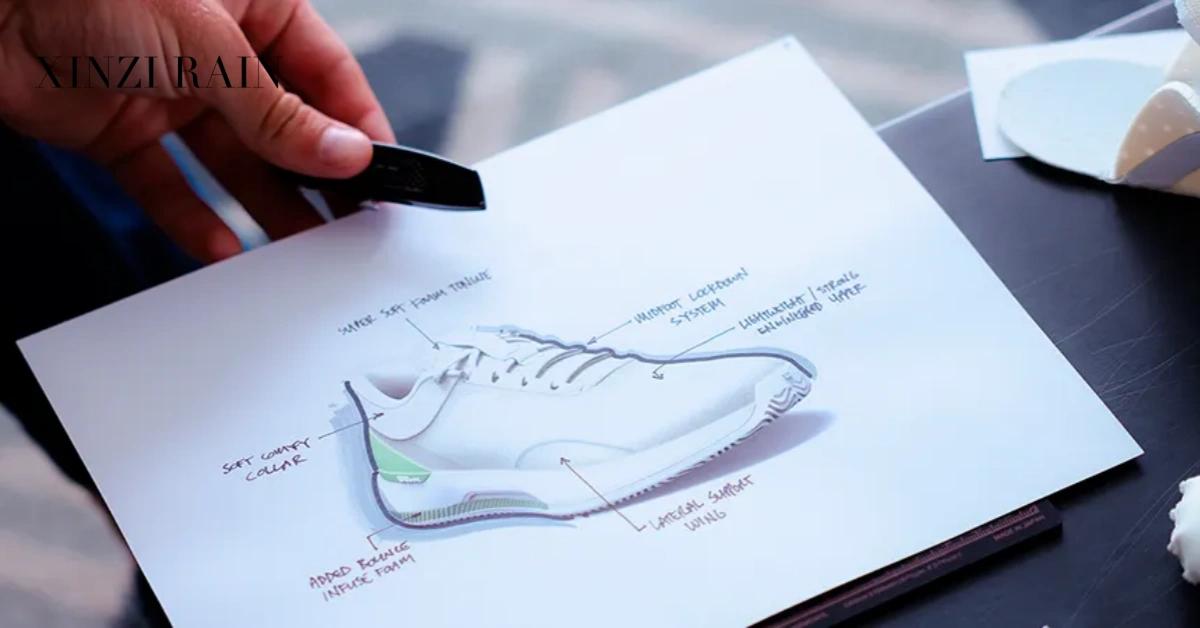 XINZI RAIN
SUPER SOFT FOAM TONGUE
MIDFOOT LOCKDOWN
SYSTEM
LIGHTWEIGHT / STRONG
UPPER
SOFT COMFY
COLLAR
LATERAL SUPPORT
WING
ADDED BOUNCE
INFUSE FOAM
MADE IN JAPAN